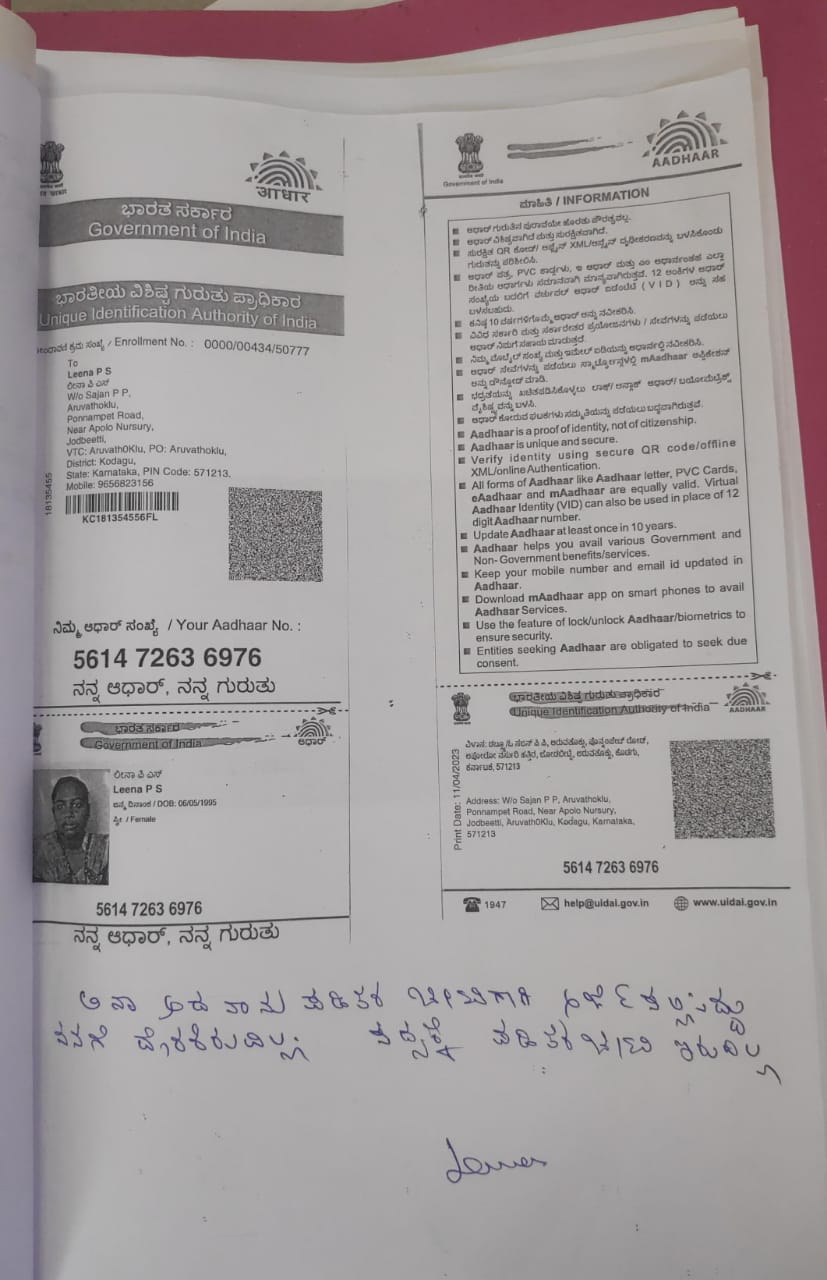 आधार
ಭಾರತ ಸರ್ಕಾರ
Government of India
ಭಾರತೀಯ ವಿಶಿಷ್ಟ ಗುರುತು ಪ್ರಾಧಿಕಾರ
Unique Identification Authority of India
ಕ್ರಮ ಸಂಖ್ಯೆ / Enrollment No. : 0000/00434/50777
To
Leena P S
ಲೀನಾ ಪಿ ಎಸ್
W/o Sajan P P,
Aruvathoklu,
Ponnampet Road,
Near Apolo Nursury,
Jodbeetti,
VTC: Aruvath0Klu, PO: Aruvathoklu,
District: Kodagu,
State: Karnataka, PIN Code: 571213,
Mobile: 9656823156
18135455
KC181354556FL
ನಿಮ್ಮ ಆಧಾರ್ ಸಂಖ್ಯೆ / Your Aadhaar No. :
5614 7263 6976
ನನ್ನ ಆಧಾರ್, ನನ್ನ ಗುರುತು
ಭಾರತ ಸರ್ಕಾರ
Government of India
ಆಧಾರ್
ಲೀನಾ ಪಿ ಎಸ್
Leena P S
ಜನ್ಮ ದಿನಾಂಕ / DOB: 06/05/1995
ಸ್ತ್ರೀ / Female
5614 7263 6976
ನನ್ನ ಆಧಾರ್, ನನ್ನ ಗುರುತು
Government of India
AADHAAR
ಮಾಹಿತಿ / INFORMATION
ಆಧಾರ್ ಗುರುತಿನ ಪುರಾವೆಯೇ ಹೊರತು ಪೌರತ್ವವಲ್ಲ.
ಆಧಾರ್ ವಿಶಿಷ್ಟವಾಗಿದೆ ಮತ್ತು ಸುರಕ್ಷಿತವಾಗಿದೆ.
ಸುರಕ್ಷಿತ QR ಕೋಡ್/ ಆಫ್ಲೈನ್ XML/ಆನ್ಲೈನ್ ದೃಢೀಕರಣವನ್ನು ಬಳಸಿಕೊಂಡು
ಗುರುತನ್ನು ಪರಿಶೀಲಿಸಿ.
ಆಧಾರ್ ಪತ್ರ, PVC ಕಾರ್ಡ್ಗಳು, ಇ ಆಧಾರ್ ಮತ್ತು ಎಂ ಆಧಾರ್ನಂತಹ ಎಲ್ಲಾ
ರೀತಿಯ ಆಧಾರ್ಗಳು ಸಮಾನವಾಗಿ ಮಾನ್ಯವಾಗಿರುತ್ತವೆ. 12 ಅಂಕಿಗಳ ಆಧಾರ್
ಸಂಖ್ಯೆಯ ಬದಲಿಗೆ ವರ್ಚುವಲ್ ಆಧಾರ್ ಐಡೆಂಟಿಟಿ (VID) ಅನ್ನು ಸಹ
ಬಳಸಬಹುದು.
ಕನಿಷ್ಠ 10 ವರ್ಷಗಳಿಗೊಮ್ಮೆ ಆಧಾರ್ ಅನ್ನು ನವೀಕರಿಸಿ.
ವಿವಿಧ ಸರ್ಕಾರಿ ಮತ್ತು ಸರ್ಕಾರೇತರ ಪ್ರಯೋಜನಗಳು / ಸೇವೆಗಳನ್ನು ಪಡೆಯಲು
ಆಧಾರ್ ನಿಮಗೆ ಸಹಾಯ ಮಾಡುತ್ತದೆ.
ನಿಮ್ಮ ಮೊಬೈಲ್ ಸಂಖ್ಯೆ ಮತ್ತು ಇಮೇಲ್ ಐಡಿಯನ್ನು ಆಧಾರ್ನಲ್ಲಿ ನವೀಕರಿಸಿ.
ಆಧಾರ್ ಸೇವೆಗಳನ್ನು ಪಡೆಯಲು ಸ್ಮಾರ್ಟ್ಫೋನ್ಗಳಲ್ಲಿ mAadhaar ಅಪ್ಲಿಕೇಶನ್
ಅನ್ನು ಡೌನ್ಲೋಡ್ ಮಾಡಿ.
ಭದ್ರತೆಯನ್ನು ಖಚಿತಪಡಿಸಿಕೊಳ್ಳಲು ಲಾಕ್/ ಅನ್ಲಾಕ್ ಆಧಾರ್/ ಬಯೋಮೆಟ್ರಿಕ್ಸ್
ವೈಶಿಷ್ಟ್ಯವನ್ನು ಬಳಸಿ.
ಆಧಾರ್ ಕೋರುವ ಘಟಕಗಳು ಸಮ್ಮತಿಯನ್ನು ಪಡೆಯಲು ಬದ್ಧವಾಗಿರುತ್ತವೆ.
Aadhaar is a proof of identity, not of citizenship.
Aadhaar is unique and secure.
Verify identity using secure QR code/offline
XML/online Authentication.
All forms of Aadhaar like Aadhaar letter, PVC Cards,
eAadhaar and mAadhaar are equally valid. Virtual
Aadhaar Identity (VID) can also be used in place of 12
digit Aadhaar number.
Update Aadhaar at least once in 10 years.
Aadhaar helps you avail various Government and
Non-Government benefits/services.
Keep your mobile number and email id updated in
Aadhaar.
Download mAadhaar app on smart phones to avail
Aadhaar Services.
Use the feature of lock/unlock Aadhaar/biometrics to
ensure security.
Entities seeking Aadhaar are obligated to seek due
consent.
ಭಾರತೀಯ ವಿಶಿಷ್ಟ ಗುರುತು ಪ್ರಾಧಿಕಾರ
Unique Identification Authority of India
AADHAAR
Print Date: 11/04/2023
ಕರ್ನಾಟಕ, 571213
Address: W/o Sajan P P, Aruvathoklu,
Ponnampet Road, Near Apolo Nursury,
Jodbeetti, Aruvath0Klu, Kodagu, Karnataka,
571213
5614 7263 6976
1947
help@uidai.gov.in
www.uidai.gov.in
ನಾನು ಪಡಿತರ
ನನಗೆ ದೊರಕಿರುವಿಲ್ಲ. ಪಡಿತರ